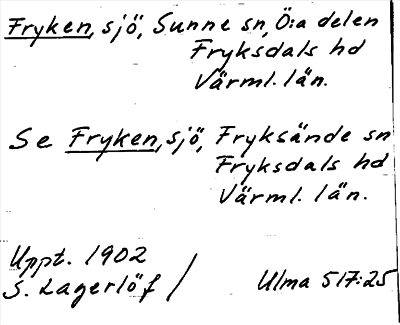 Fryken, sjö, Sunne sn, Ö:a delen
Fryksdals hd
Värml. län.
Se Fryken, sjö, Fryksände sn
Fryksdals hd
Värml. län.
Uppt. 1902
S. Lagerlöf / Ulma 517:25